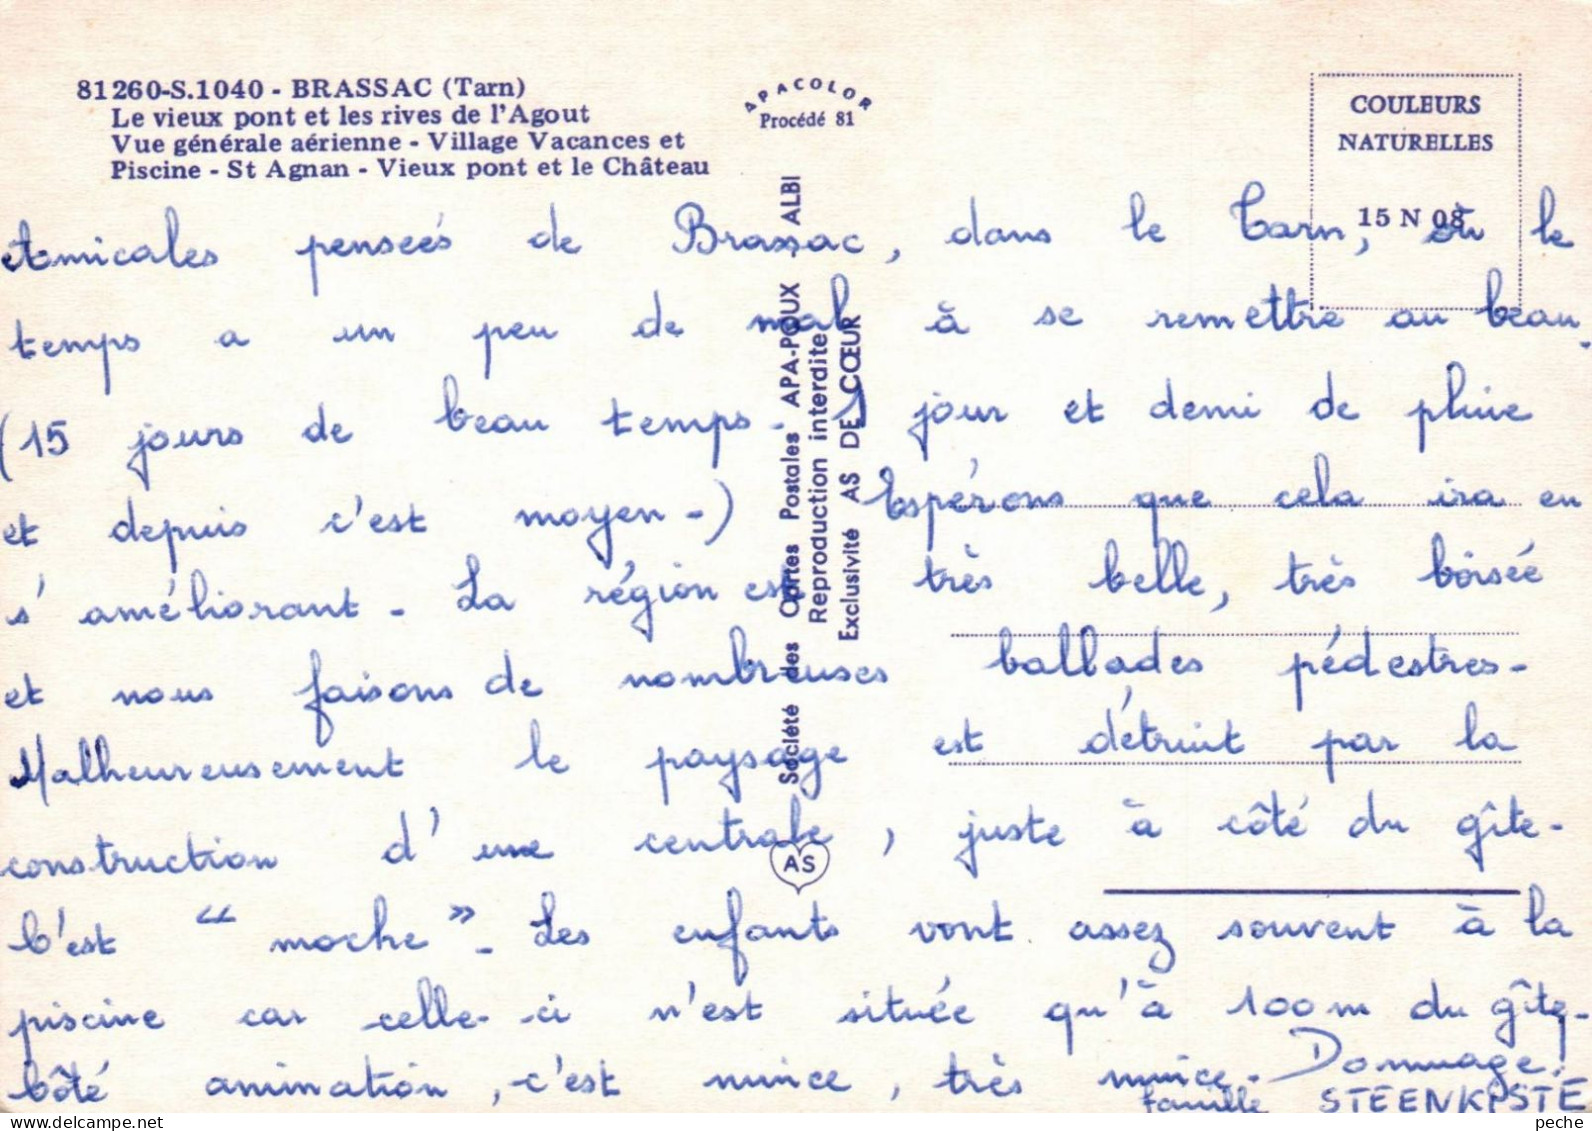 81260-S.1040 - BRASSAC (Tarn)
Le vieux pont et les rives de l'Agout
Vue générale aérienne - Village Vacances et
Piscine - St Agnan - Vieux pont et le Château
APACOLOR
Procédé 81
COULEURS
NATURELLES
15 N 08
Société des Cartes Postales APA-POUX - ALBI
Reproduction interdite
Exclusivité AS DE CŒUR
AS
Amicales pensées de Brassac, dans le Tarn, où le
temps a un peu de mal à se remettre au beau.
(15 jours de beau temps. 1 jour et demi de pluie
et depuis c'est moyen-) Espérons que cela ira en
s'améliorant - La région est très belle, très boisée
et nous faisons de nombreuses ballades pédestres-
Malheureusement le paysage est détruit par la
construction d'une centrale, juste à côté du gîte-
C'est "moche"- Les enfants vont assez souvent à la
piscine car celle-ci n'est située qu'à 100m du gîte-
Côté animation, c'est mince, très mince- Dommage!
famille STEENKISTE
peche